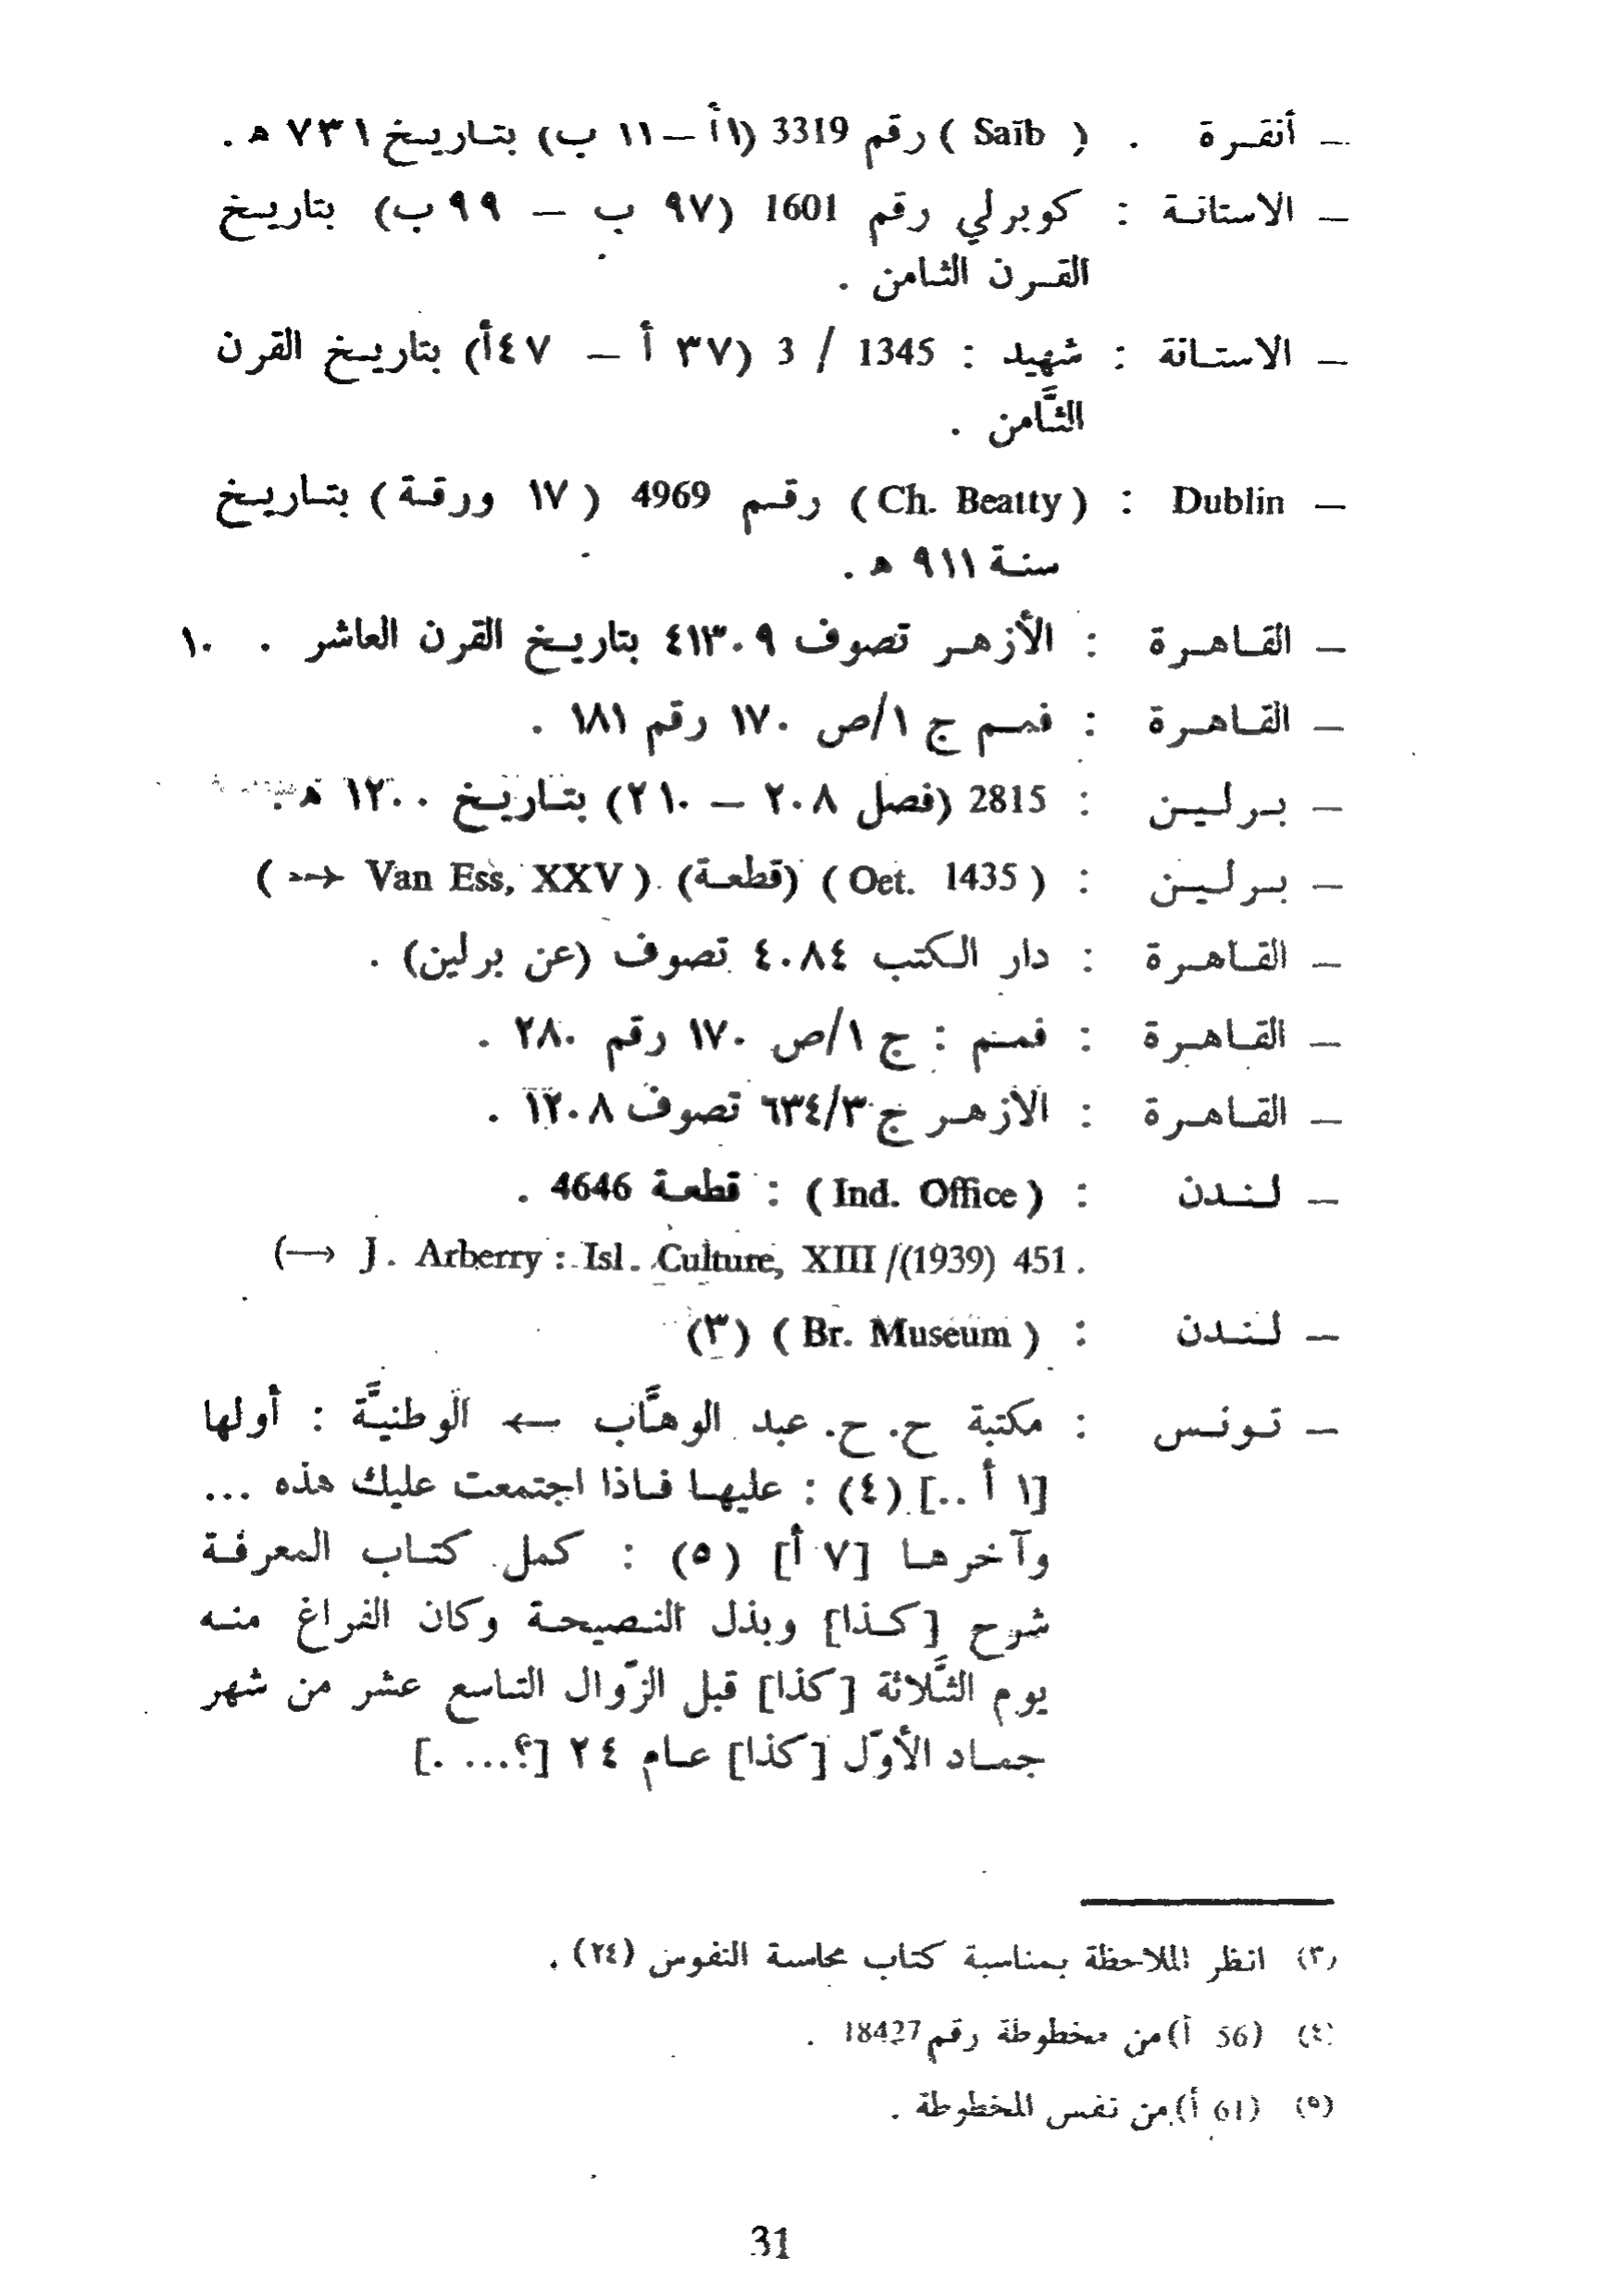 — أنقـرة . ( Saïb ) رقم 3319 (١أ — ١١ ب) بتـاريـخ ٧٣١ هـ .
— الاستانـة : كوبرلي رقم 1601 (٩٧ ب — ٩٩ب) بتاريـخ
القـرن الثـامن .
— الاستـانة : شهيد : 1345 / 3 (٣٧ أ — ٤٧أ) بتاريـخ القرن
الثَّامن .
— Dublin : ( Ch. Beatty ) رقـم 4969 ( ١٧ ورقـة ) بتـاريـخ
سنـة ٩١١ هـ .
— القـاهـرة : الأزهـر تصوف ٤١٣٠٩ بتاريـخ القرن العاشر . ١٠
— القـاهـرة : فمـم ج ١/ص ١٧٠ رقم ١٨١ .
— بـرلـيـن : 2815 (فصل ٢٠٨ — ٢١٠) بتـاريـخ ١٢٠٠ هـ .
— بـرلـيـن : ( Oet. 1435 ) (قطعـة) ( Van Ess, XXV → )
— القـاهـرة : دار الـكتب ٤٠٨٤ تصوف (عن برلين) .
— القـاهـرة : فمـم : ج ١/ص ١٧٠ رقم ٢٨٠ .
— القـاهـرة : الازهـر ج ٦٣٤/٣ تصوف ١٢٠٨ .
— لـنـدن : ( Ind. Office ) : قطعـة 4646 .
(→ J. Arberry : Isl. Culture, XIII /(1939) 451.
— لـنـدن : ( Br. Museum ) (٣)
— تـونـس : مكتبة ح. ح. عبد الوهـَّاب ← الوطنيـَّة : أولها
[١ أ ..] (٤) : عليهـا فـاذا اجتمعت عليك هذه ...
وآخرهـا [٧ أ] (٥) : كمل كتـاب المعرفـة
شرح [كـذا] وبذل النـصيحـة وكان الفراغ منـه
يوم الثَّلاثة [كذا] قبل الزّوال التـاسع عشر من شهر
جمـاد الأوّل [كذا] عـام ٢٤ [؟... .]
(٣) انظر الملاحظة بمناسبة كتاب محاسبة النفوس (٢٤) .
(٤) (56 أ) من مخطوطة رقم 18427 .
(٥) (61 أ) من نفس المخطوطة .
31